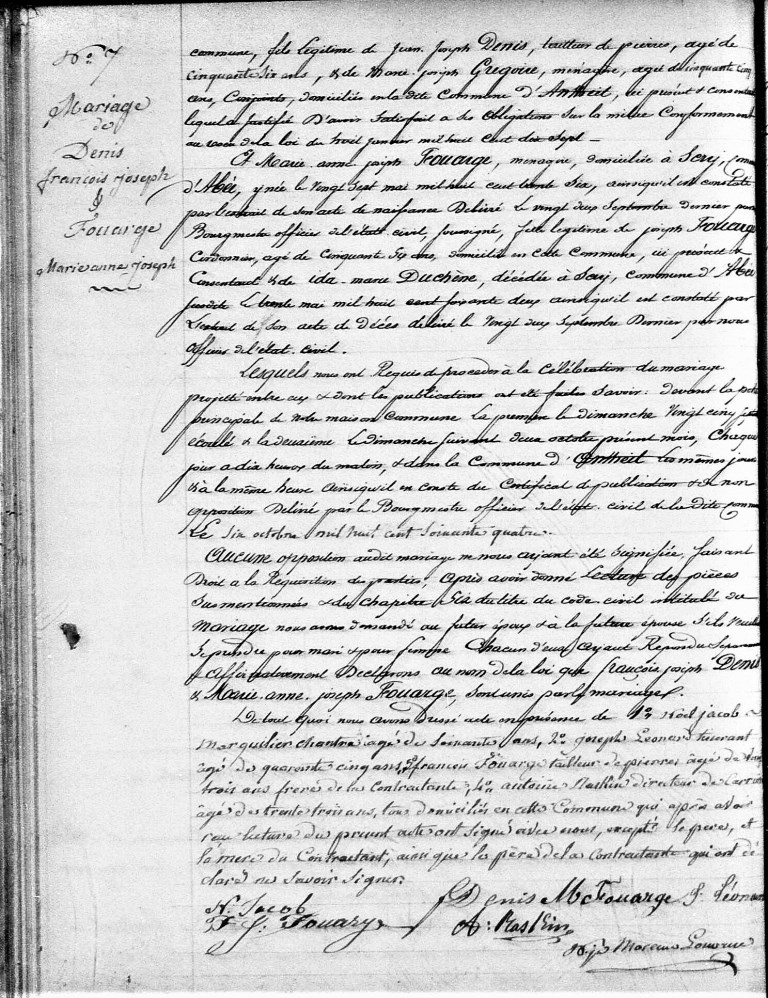 No 7
Mariage
de
Denis
françois joseph
&
Fouarge
Marie anne joseph
commune, fils legitime de Jean Joseph Denis, tailleur de pierres, agé de
cinquante six ans, & de Marie joseph Gregoire, menagère, agée de cinquante cinq
ans, Conjoints, domiciliés en la dite Commune d'Antheit, ici présent & consentant
lequel a justifié D'avoir Satisfait a ses Obligations Sur la milice Conformement
au voeu de la loi du huit janvier mil huit Cent dix Sept –
Et Marie anne joseph Fouarge, menagère, domiciliée à Scry,
d'Abée, y née le Vingt Sept mai mil huit cent trente Six, ainsi qu'il est constaté
par l'extrait de son acte de naissance Délivré Le vingt deux Septembre dernier
Bourgmestre officier de l'état civil, soussigné, fille legitime de joseph Fouarge
Cordonnier, agé de Cinquante ans, domicilié en cette Commune, ici présent &
Consentant & de ida marie Duchène, décédée à Scry, commune d'Abée
susdite Le trente mai mil huit cent soixante deux ainsi qu'il est constaté par
L'extrait de Son acte de Décès délivré le Vingt deux Septembre Dernier par nous
Officier de l'état civil.
Lesquels nous ont Requis de proceder à la Célébration du mariage
projetté entre eux & dont les publications ont été faites Savoir: devant la porte
principale de notre maison Commune La première le dimanche Vingt cinq
écoulé & la deuxième Le dimanche suivant deux octobre présent mois, Chaque
jour a dix heures du matin, & dans la Commune d'Antheit Les mêmes jours
& à la même heure Ainsi qu'il en conste du Certificat de publication & de non
opposition Délivré par le Bourgmestre officier de l'état civil de la Dite
Le Six octobre mil huit cent soixante quatre.
Aucune opposition audit mariage ne nous ayant été Signifiée, faisant
Droit a la Requisition des parties, Après avoir donné Lecture des pièces
Sus mentionnés & du Chapitre Six du titre du code civil intitulé du
Mariage nous avons demandé au futur époux & à la future épouse S'ils veulent
Se prendre pour mari & pour femme Chacun d'eux Ayant Repondu Séparement
& Affirmativement Declarons au nom de la loi que françois joseph Denis
& Marie anne joseph Fouarge, Sont unis par le mariage.
De tout quoi nous avons Dressé acte en présence de 1o Noël jacob
Marguilier chantre agé de Soixante ans, 2o joseph Léonard
agé de quarante cinq ans, 3o françois Fouarge tailleur de pierres âgé de
trois ans frère de la Contractante, 4o antoine Raskin directeur de
âgé de trente trois ans, tous domiciliés en cette Commune qui après avoir
reçu lecture du présent acte ont Signé avec nous, excepté le père, et
la mère du Contractant, ainsi que le père de la contractante qui ont dé
claré ne Savoir Signer.
N. Jacob F Denis M C Fouarge J. Léonard
F. J. Fouarge A: Raskin